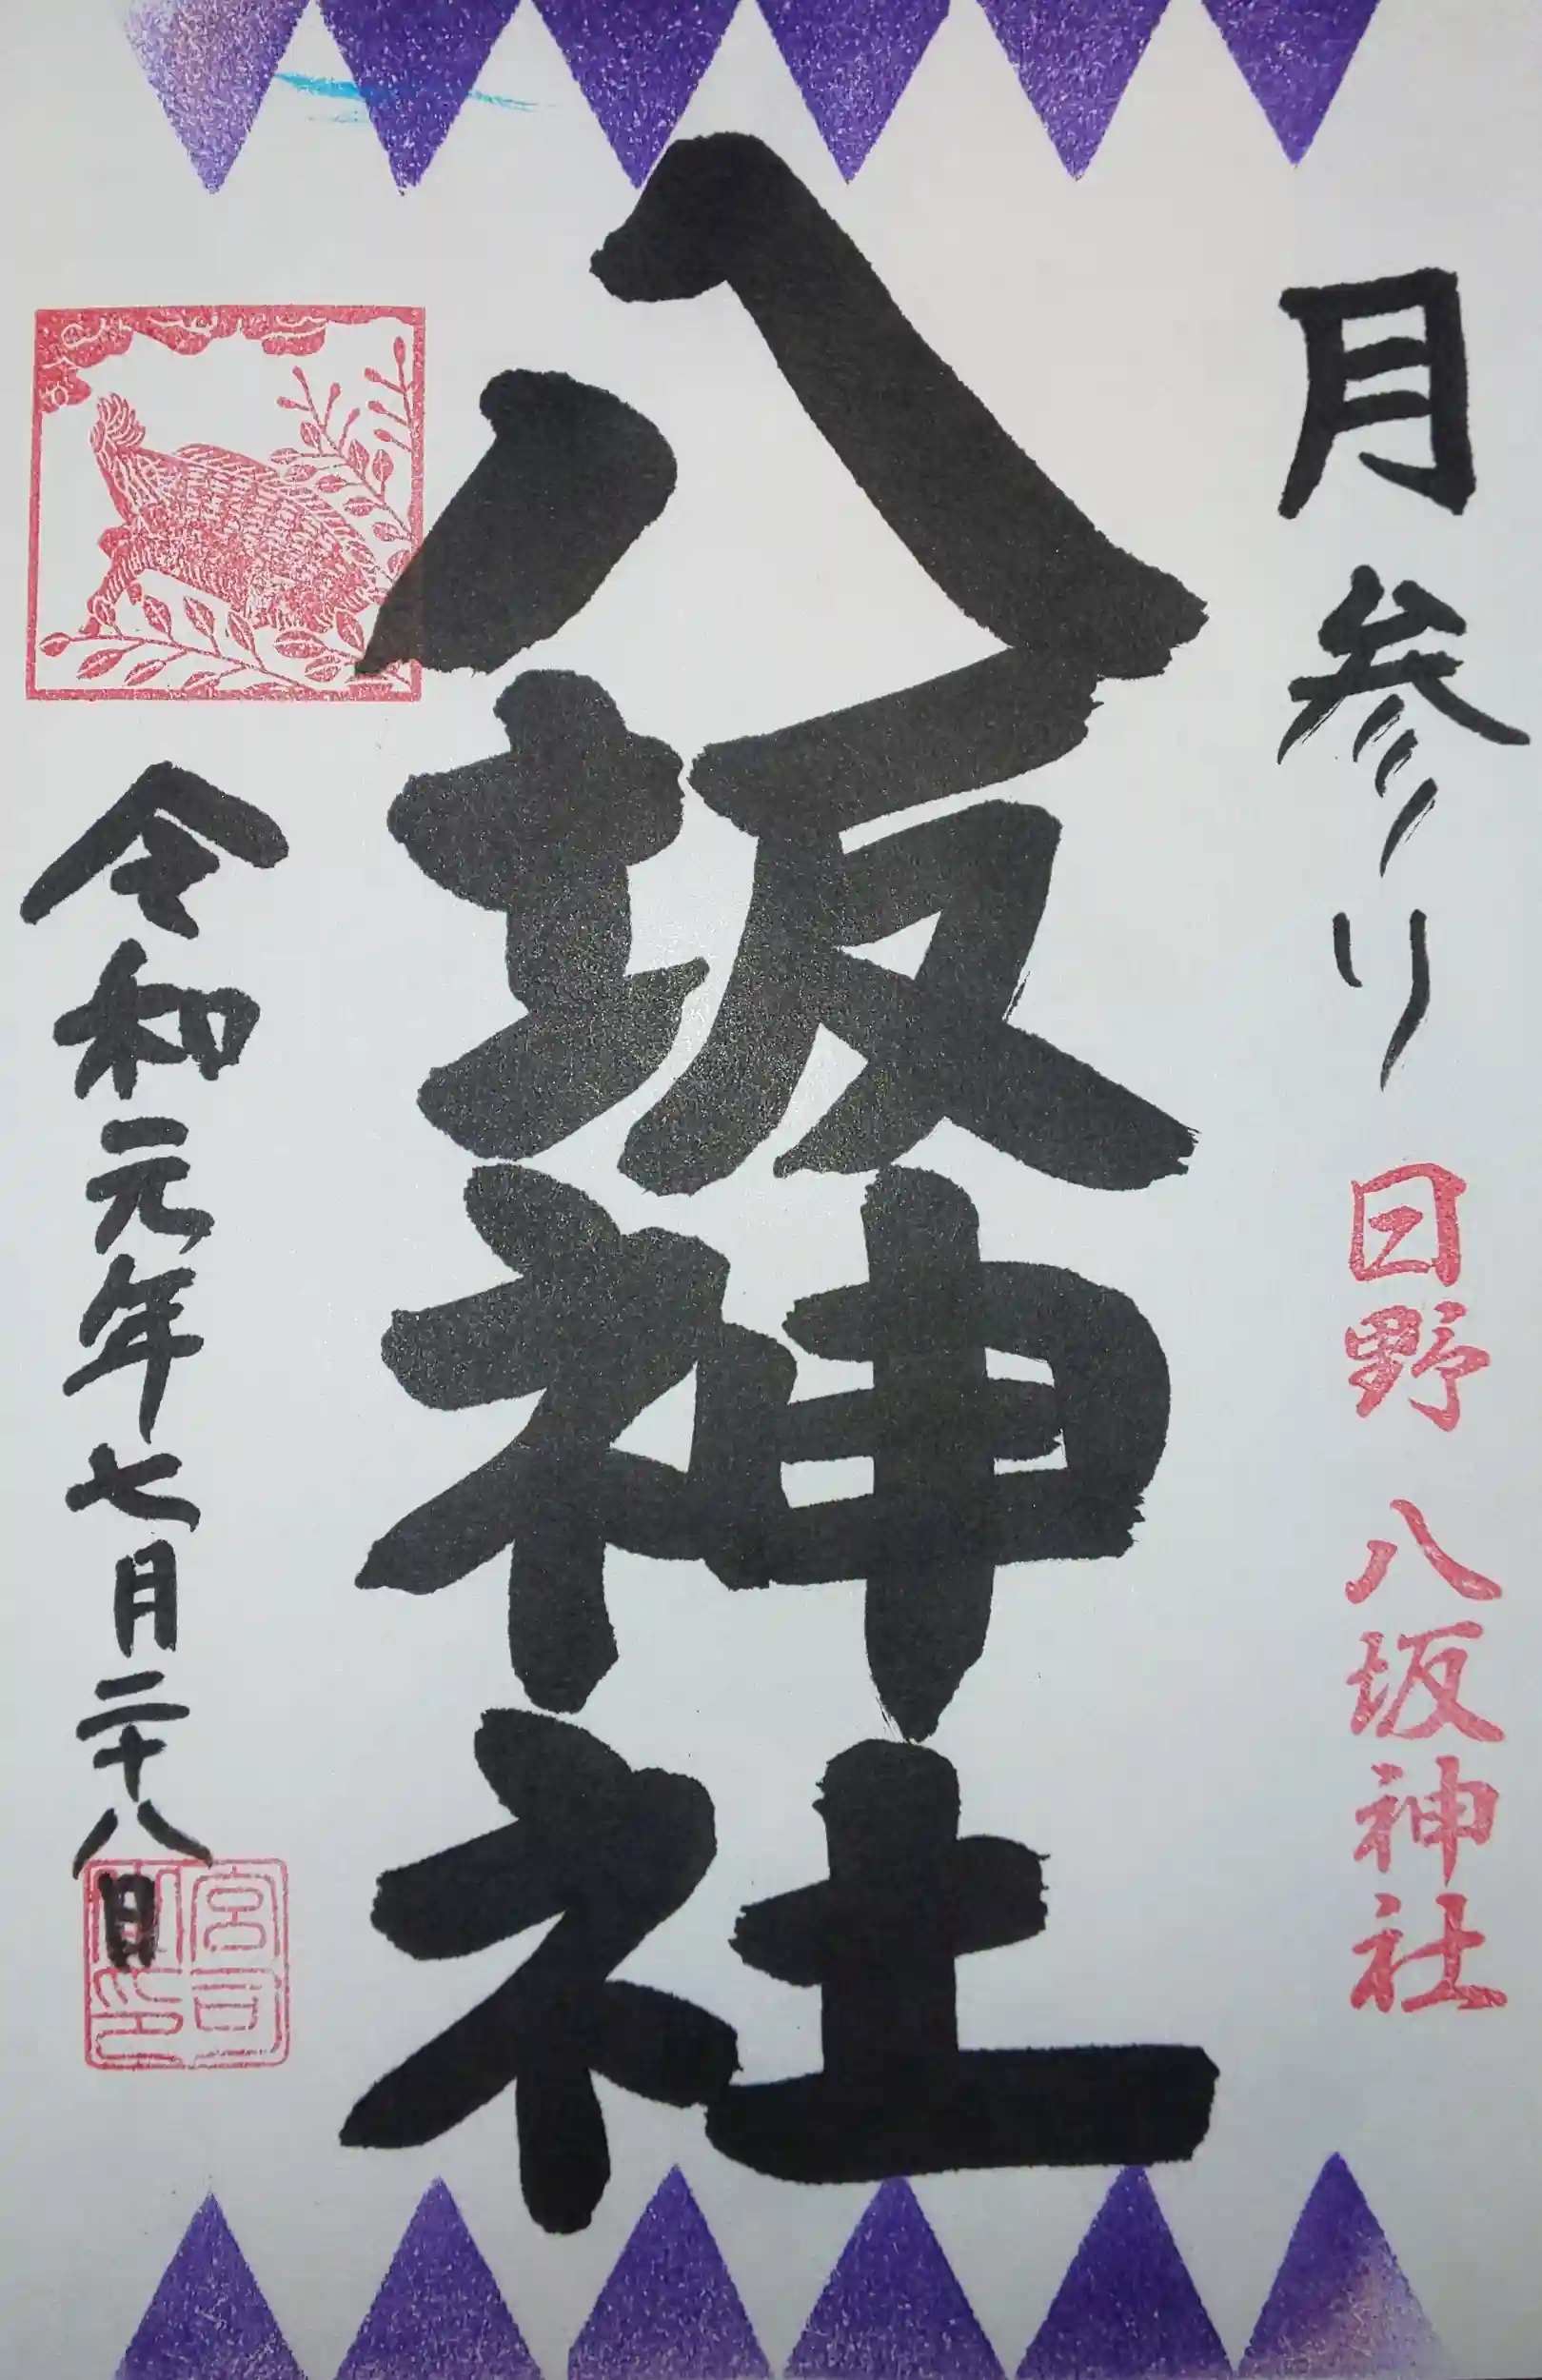 月参り
日野 八坂神社
八坂神社
令和元年七月二十八日
宮司
之印